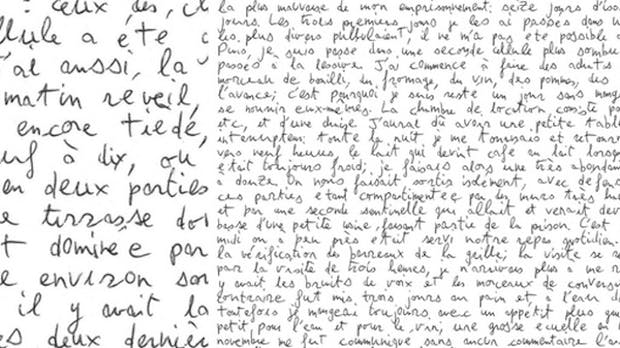 ceux des, il
llule a été c
'ai aussi, la
matin reveil,
encore tiède,
uf à dix, ou
en deux parties
e terrasse do
t dominée par
e environ so
il y avait la
es deux derniè
la plus mauvaise de mon emprisonnement: seize jours d'iso
jours. Les trois premiers jours je les ai passés dans u
les plus divers pullulaient, il ne m'a pas été possible
Puis, je suis passé dans une seconde cellule plus sombre
passés à la lessive. J'ai commencé à faire des achats
morceau de bouilli, du fromage, du vin, des pommes, des
l'avance; c'est pourquoi je suis resté un jour sans mang
se nourrir eux-mêmes. La chambre de location consiste
etc, et d'une chaise. J'aurai dû avoir une petite table
interruption: toute la nuit je me tournais et retourn
vers neuf heures, le lait qui devint café au lait lorsq
était toujours froid; je faisais alors une très abondan
à douze. On nous faisait sortir isolément, avec défens
ces parties étant compartimentée par des murs très hau
et par une seconde sentinelle qui allait et venait dev
basse d'une petite usine, faisant partie de la prison. C'est
midi on a peu près était servi notre repas quotidien.
la vérification des barreaux de la grille; la visite se
par la visite de trois heures, je n'arrivais plus à me r
y avait les bruits de voix et les morceaux de convers
contraire fut mis trois jours au pain et à l'eau
toutefois je mangeai toujours avec un appétit plus qu
petit, pour l'eau et pour le vin; une grosse écuelle en
novembre me fut communiqué sans aucun commentaire l'a